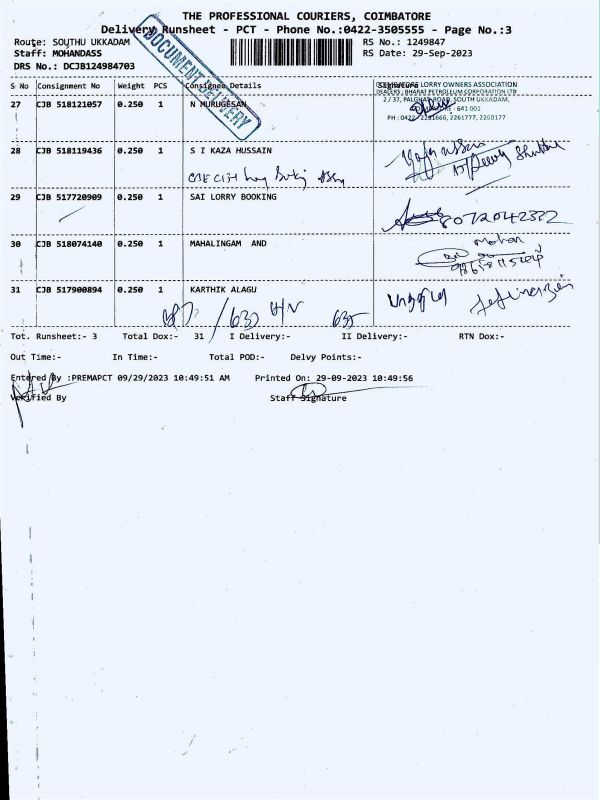 THE PROFESSIONAL COURIERS, COIMBATORE
Delivery Runsheet - PCT - Phone No.:0422-3505555 - Page No.:3
Route: SOUTHU UKKADAM
RS No.: 1249847
Staff: MOHANDASS
RS Date: 29-Sep-2023
DRS No.: DCJB124984703
DOCUMENT DELIVERY
S No Consignment No Weight PCS Consignee Details Signature
27 CJB 518121057 0.250 1 N MURUGESAN
COIMBATORE LORRY OWNERS ASSOCIATION
DEALERS, BHARAT PETROLEUM CORPORATION LTD
2 / 37, PALGHAT ROAD, SOUTH UKKADAM,
- 641 001
PH : 0422 / 2261666, 2261777, 2260177
28 CJB 518119436 0.250 1 S I KAZA HUSSAIN
29 CJB 517720909 0.250 1 SAI LORRY BOOKING
8072042322
30 CJB 518074140 0.250 1 MAHALINGAM AND
Mohan
31 CJB 517900894 0.250 1 KARTHIK ALAGU
Tot. Runsheet:- 3 Total Dox:- 31 I Delivery:- II Delivery:- RTN Dox:-
Out Time:- In Time:- Total POD:- Delvy Points:-
Entered By :PREMAPCT 09/29/2023 10:49:51 AM Printed On: 29-09-2023 10:49:56
Verified By Staff Signature